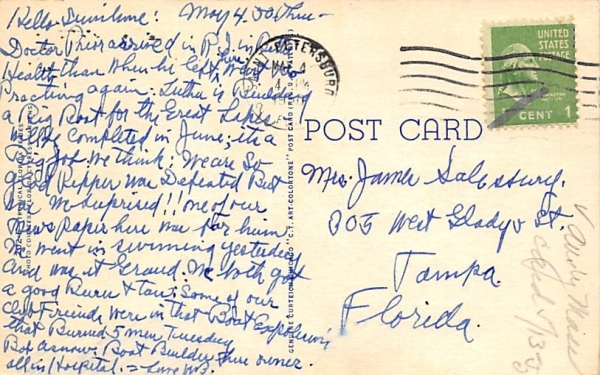 Hello Sunshine: May 4. 50 Thur-
Doctor Price arrived in R.I. in Better
Health than when he left, went into
Practicing again. Luther is Building
a Big Boat for the Great Lakes
will be completed in June; its a
Big Job we think: We are so
glad Pepper was Defeated But
was we surprised!! one of our
News paper here was for him
We went in swimming yesterday
and was it Grand. We both got
a good Burn & Tan; Some of our
club Friends were in that Boat Explosion
that Burned 5 men, Tuesday
Bob Boat Builder, owner.
all in Hospital. = Love
ST. PETERSBURG
MAY 4
UNITED
STATES
POSTAGE
1
CENT 1
POST CARD
Mrs. James Salesbury.
305 West Gladys St.
Tampa
Florida.
GENUINE CURTEICH-CHICAGO "C.T. ART-COLORTONE" POST CARD (REG. U.S. PAT. OFF.)